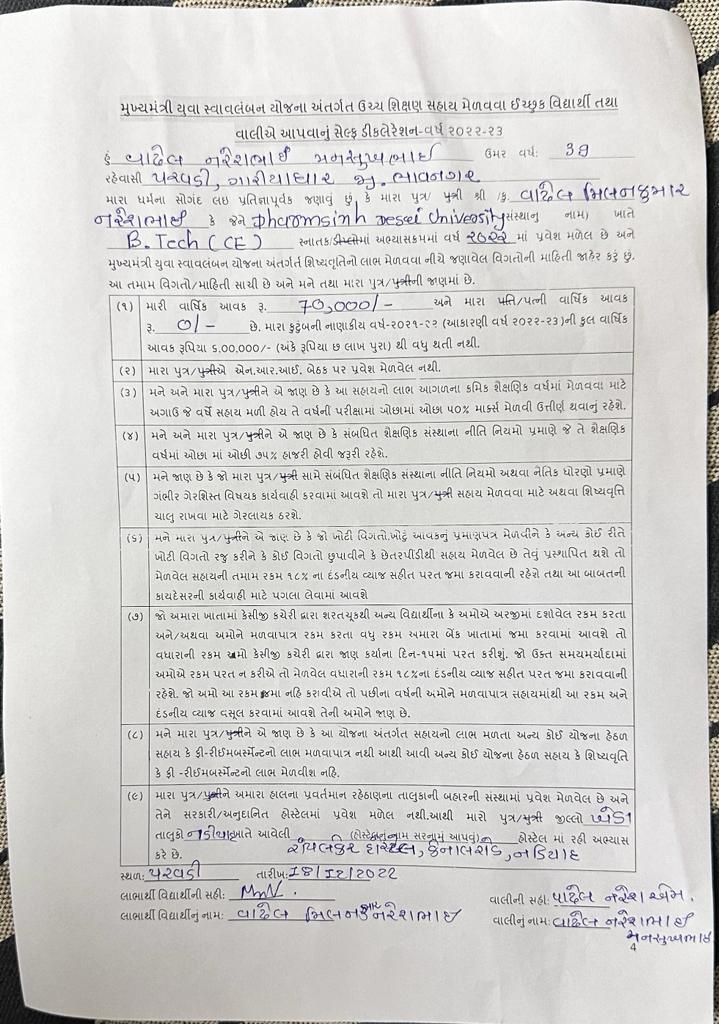 મુખ્યમંત્રી યુવા સ્વાવલંબન યોજના અંતર્ગત ઉચ્ચ શિક્ષણ સહાય મેળવવા ઈચ્છુક વિદ્યાર્થી તથા
વાલીએ આપવાનું સેલ્ફ ડીકલેરેશન-વર્ષ ૨૦૨૨-૨૩
હું વાઢેલ નરેશભાઈ મનસુખભાઈ ઉમર વર્ષ: 39
રહેવાસી પરવડી, ગારીયાધાર જી. ભાવનગર
મારા ધર્મના સોગંદ લઇ પ્રતિજ્ઞાપૂર્વક જણાવું છું કે મારા પુત્ર/ પુત્રી શ્રી /કુ વાઢેલ મિલનકુમાર
નરેશભાઈ કે જેને Dharomsinh Desei University સંસ્થાનુ નામ) ખાતે
B.Tech (CE) સ્નાતક/ડીપ્લોમાં અભ્યાસક્રમમાં વર્ષ ૨૦૨૨ માં પ્રવેશ મળેલ છે અને
મુખ્યમંત્રી યુવા સ્વાવલંબન યોજના અંતર્ગત શિષ્યવૃતિનો લાભ મેળવવા નીચે જણાવેલ વિગતોની માહિતી જાહેર કરું છું.
આ તમામ વિગતો/માહિતી સાચી છે અને મને તથા મારા પુત્ર/પુત્રીની જાણમાં છે.
(૧) મારી વાર્ષિક આવક રૂ. 70,000/- અને મારા પતિ/પત્ની વાર્ષિક આવક
રૂ. 0/- છે. મારા કુટુંબની નાણાકીય વર્ષ-૨૦૨૧-૨૨ (આકારણી વર્ષ ૨૦૨૨-૨૩)ની કુલ વાર્ષિક
આવક રૂપિયા ૬,૦૦,૦૦૦/- (અંકે રૂપિયા છ લાખ પુરા) થી વધુ થતી નથી.
(૨) મારા પુત્ર/પુત્રીએ એન.આર.આઈ. બેઠક પર પ્રવેશ મેળવેલ નથી.
(૩) મને અને મારા પુત્ર/પુત્રીને એ જાણ છે કે આ સહાયનો લાભ આગળના ક્રમિક શૈક્ષણિક વર્ષમાં મેળવવા માટે
અગાઉ જે વર્ષે સહાય મળી હોય તે વર્ષની પરીક્ષામાં ઓછામાં ઓછા ૫૦% માર્ક્સ મેળવી ઉત્તીર્ણ થવાનું રહેશે.
(૪) મને અને મારા પુત્ર/પુત્રીને એ જાણ છે કે સંબધિત શૈક્ષણિક સંસ્થાના નીતિ નિયમો પ્રમાણે જે તે શૈક્ષણિક
વર્ષમાં ઓછા માં ઓછી ૭૫% હાજરી હોવી જરૂરી રહેશે.
(૫) મને જાણ છે કે જો મારા પુત્ર/પુત્રી સામે સંબંધિત શૈક્ષણિક સંસ્થાના નીતિ નિયમો અથવા નૈતિક ધોરણો પ્રમાણે
ગંભીર ગેરશિસ્ત વિષયક કાર્યવાહી કરવામાં આવશે તો મારા પુત્ર/પુત્રી સહાય મેળવવા માટે અથવા શિષ્યવૃત્તિ
ચાલુ રાખવા માટે ગેરલાયક ઠરશે.
(૬) મને મારા પુત્ર/પુત્રીને એ જાણ છે કે જો ખોટી વિગતો,ખોટું આવકનું પ્રમાણપત્ર મેળવીને કે અન્ય કોઈ રીતે
ખોટી વિગતો રજુ કરીને કે કોઈ વિગતો છુપાવીને કે છેતરપીંડીથી સહાય મેળવેલ છે તેવું પ્રસ્થાપિત થશે તો
મેળવેલ સહાયની તમામ રકમ ૧૮% ના દંડનીય વ્યાજ સહીત પરત જમા કરાવવાની રહેશે તથા આ બાબતની
કાયદેસરની કાર્યવાહી માટે પગલા લેવામાં આવશે
(૭) જો અમારા ખાતામાં કેસીજી કચેરી દ્વારા શરતચૂકથી અન્ય વિદ્યાર્થીના કે અમોએ અરજીમાં દર્શાવેલ રકમ કરતા
અને/અથવા અમોને મળવાપાત્ર રકમ કરતા વધુ રકમ અમારા બેંક ખાતામાં જમા કરવામાં આવશે તો
વધારાની રકમ અમો કેસીજી કચેરી દ્વારા જાણ કર્યાના દિન-૧૫માં પરત કરીશું. જો ઉક્ત સમયમર્યાદામાં
અમોએ રકમ પરત ન કરીએ તો મેળવેલ વધારાની રકમ ૧૮%ના દંડનીય વ્યાજ સહીત પરત જમા કરાવવાની
રહેશે. જો અમો આ રકમ જમા નહિ કરાવીએ તો પછીના વર્ષની અમોને મળવાપાત્ર સહાયમાંથી આ રકમ અને
દંડનીય વ્યાજ વસૂલ કરવામાં આવશે તેની અમોને જાણ છે.
(૮) મને મારા પુત્ર/પુત્રીને એ જાણ છે કે આ યોજના અંતર્ગત સહાયનો લાભ મળતા અન્ય કોઈ યોજના હેઠળ
સહાય કે ફી-રીઈમબર્સ્મેન્ટનો લાભ મળવાપાત્ર નથી આથી આવી અન્ય કોઈ યોજના હેઠળ સહાય કે શિષ્યવૃતિ
કે ફી -રીઈમબર્સ્મેન્ટનો લાભ મેળવીશ નહિ.
(૯) મારા પુત્ર/પુત્રીને અમારા હાલના પ્રવર્તમાન રહેઠાણના તાલુકાની બહારની સંસ્થામાં પ્રવેશ મેળવેલ છે અને
તેને સરકારી/અનુદાનિત હોસ્ટેલમાં પ્રવેશ મળેલ નથી.આથી મારો પુત્ર/પુત્રી જીલ્લો ખેડા
તાલુકો નડીયાદ ખાતે આવેલી (હોસ્ટેલનું નામ સરનામું આપવું) હોસ્ટેલ માં રહી અભ્યાસ
કરે છે. હોસ્ટેલ, કેનાલરોડ, નડિયાદ
સ્થળ: પરવડી તારીખ: 18/12/2022
લાભાર્થી વિદ્યાર્થીની સહી: વાલીની સહી: વાઢેલ નરેશ એમ.
લાભાર્થી વિદ્યાર્થીનું નામ: વાઢેલ મિલનકુમાર નરેશભાઈ વાલીનું નામ: વાઢેલ નરેશભાઈ
મનસુખભાઇ
4